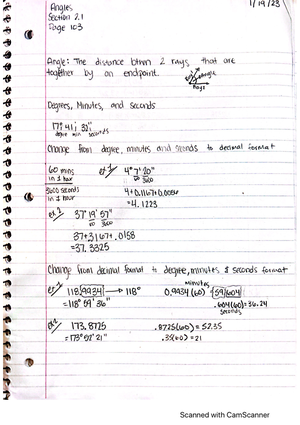 Angles
Section 2.1
Page 163
1/19/23
Angle: The distance btwn 2 rays that are
together by an endpoint.
Angle
Rays
Degrees, Minutes, and Seconds
17° 41' 32"
degree min seconds
Change from degree, minutes and seconds to decimal format
60 mins
in 1 hour
3600 seconds
in 1 hour
ex 1
4° 7' 20"
60 3600
4+0.1167+0.0056
= 4.1223
ex 2
37° 19' 57"
60 3600
37+.3167+.0158
=37.3325
Change from decimal format to degree, minutes & seconds format
ex 1
118.9934 → 118°
=118° 59' 36"
minutes
0.9934(60) 59.604
.604(60)=36.24
seconds
ex 2
173.8725
=173° 52' 21"
.8725(60)=52.35
.35(60)=21
Scanned with CamScanner